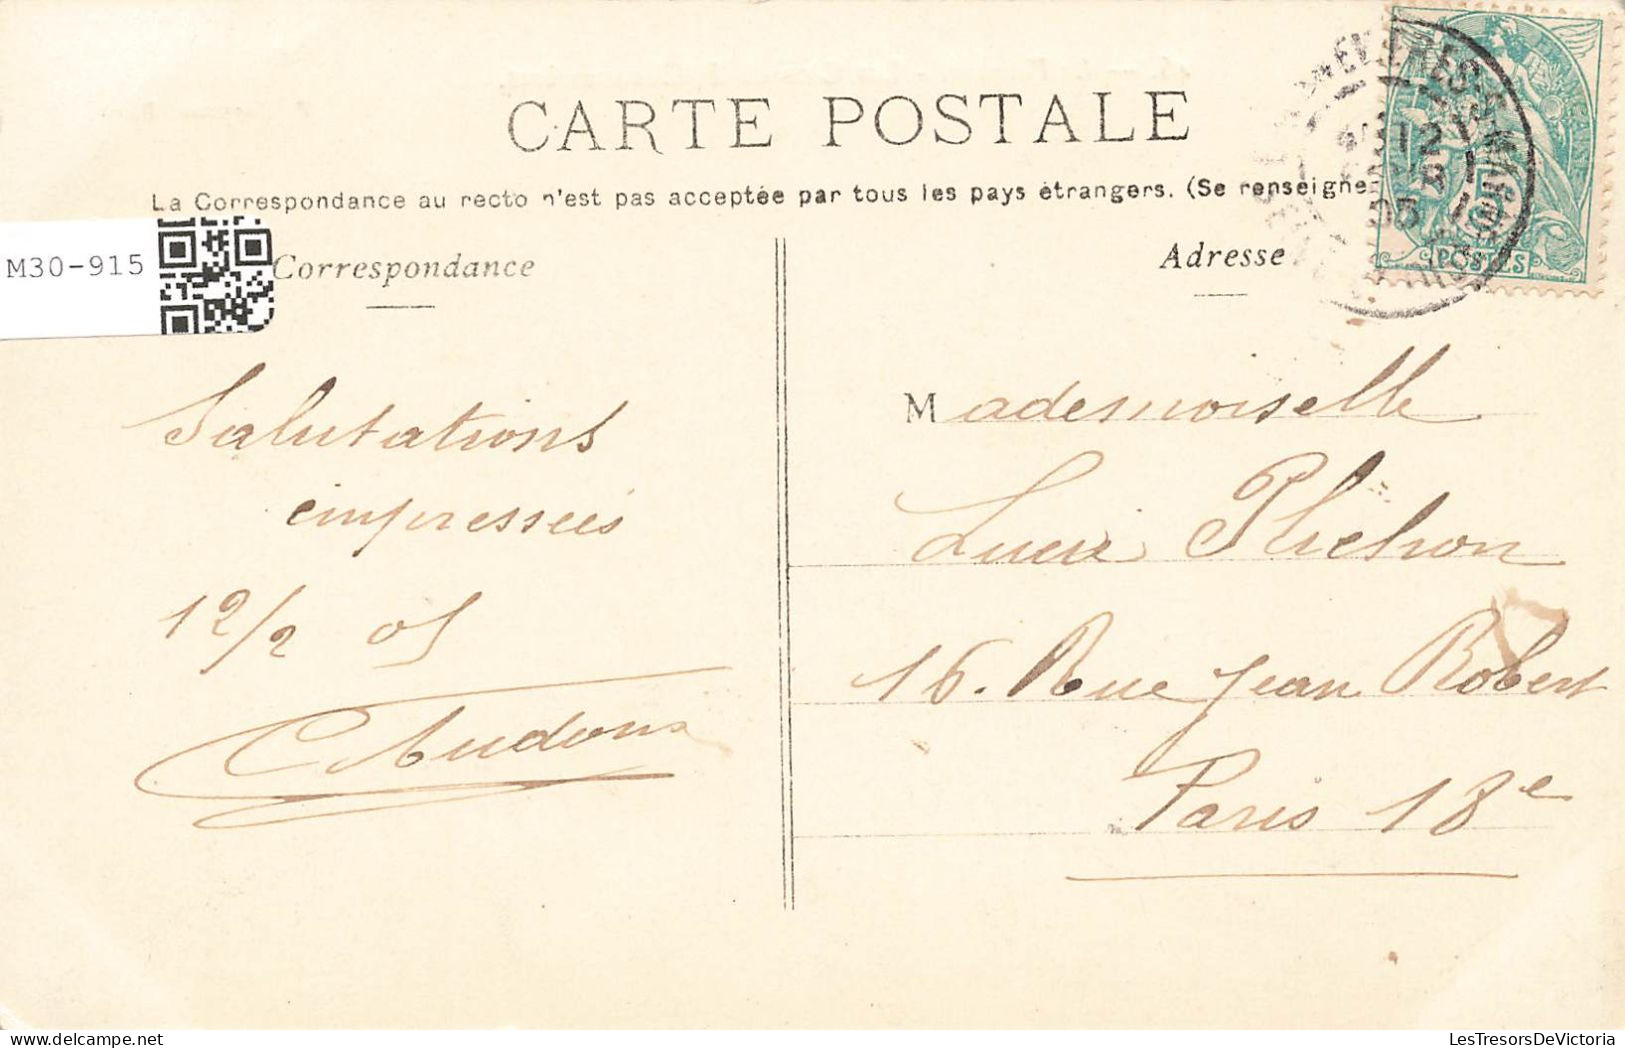 CARTE POSTALE
La Correspondance au recto n'est pas acceptée par tous les pays étrangers. (Se renseigne
M30-915
Correspondance
Salutations
empressées
12/2 05
Adresse
Mademoiselle
Lucie Plichon
16. Rue Jean Robert
Paris 18e
12
05
5
POSTES
LesTresorsDeVictoria